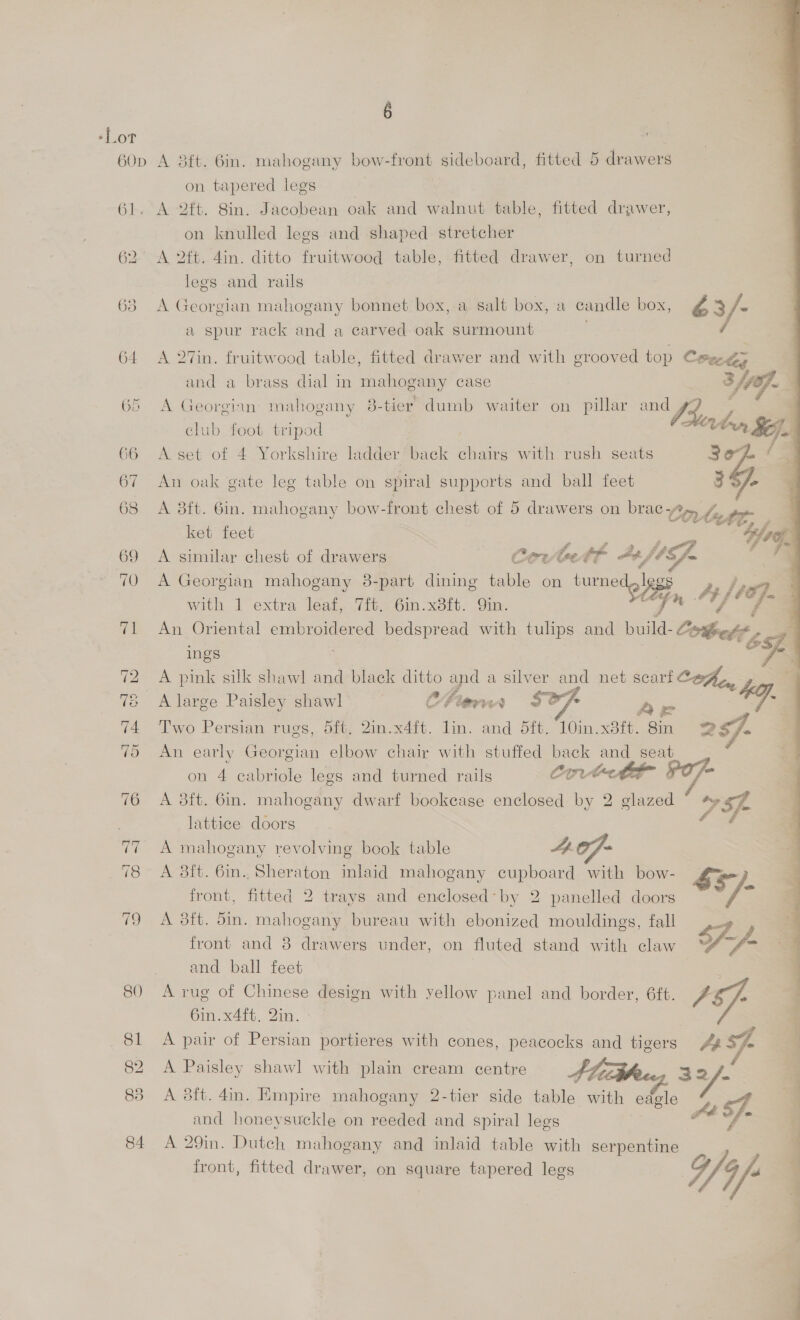 6
Lot
60D A 3ft. 6in. mahogany bow-front sideboard, fitted 5 drawers
on tapered legs
61. A 2ft. 8in. Jacobean oak and walnut table, fitted drawer,
on knulled legs and shaped stretcher
62 A 2ft. 4in. ditto fruitwood table, fitted drawer, on turned
legs and rails
63 A Georgian mahogany bonnet box, a salt box, a candle box, 63/-
a spur rack and a carved oak surmount
64 A 27in. fruitwood table, fitted drawer and with grooved top
and a brass dial in mahogany case
65 A Georgian mahogany 3-tier dumb waiter on pillar and
club foot tripod
66 A set of 4 Yorkshire ladder back chairs with rush seats 30/-
67 An oak gate leg table on spiral supports and ball feet
68 A 3ft. 6in. mahogany bow-front chest of 5 drawers on brac-
ket feet
69 A similar chest of drawers Corbett
70 A Georgian mahogany 3-part dining table on turned legs
with 1 extra leaf, 7ft. 6in.x3ft. 9in.
71 An Oriental embroidered bedspread with tulips and build- Corbett
ings 65/-
72 A pink silk shawl and black ditto and a silver and net scarf
73 A large Paisley shawl 50/-
74 Two Persian rugs, 5ft. 2in.x4ft. 1in. and 5ft. 10in.x3ft. 8in 25/-
75 An early Georgian elbow chair with stuffed back and seat
on 4 cabriole legs and turned rails Corbett
76 A 3ft. 6in. mahogany dwarf bookcase enclosed by 2 glazed
lattice doors
77 A mahogany revolving book table 40/-
78 A 3ft. 6in. Sheraton inlaid mahogany cupboard with bow- 65/-
front, fitted 2 trays and enclosed by 2 panelled doors
79 A 3ft. 5in. mahogany bureau with ebonized mouldings, fall
front and 3 drawers under, on fluted stand with claw
and ball feet
80 A rug of Chinese design with yellow panel and border, 6ft.
6in.x4ft. 2in.
81 A pair of Persian portieres with cones, peacocks and tigers
82 A Paisley shawl with plain cream centre 32/-
83 A 3ft. 4in. Empire mahogany 2-tier side table with eagle
and honeysuckle on reeded and spiral legs
84 A 29in. Dutch mahogany and inlaid table with serpentine
front, fitted drawer, on square tapered legs